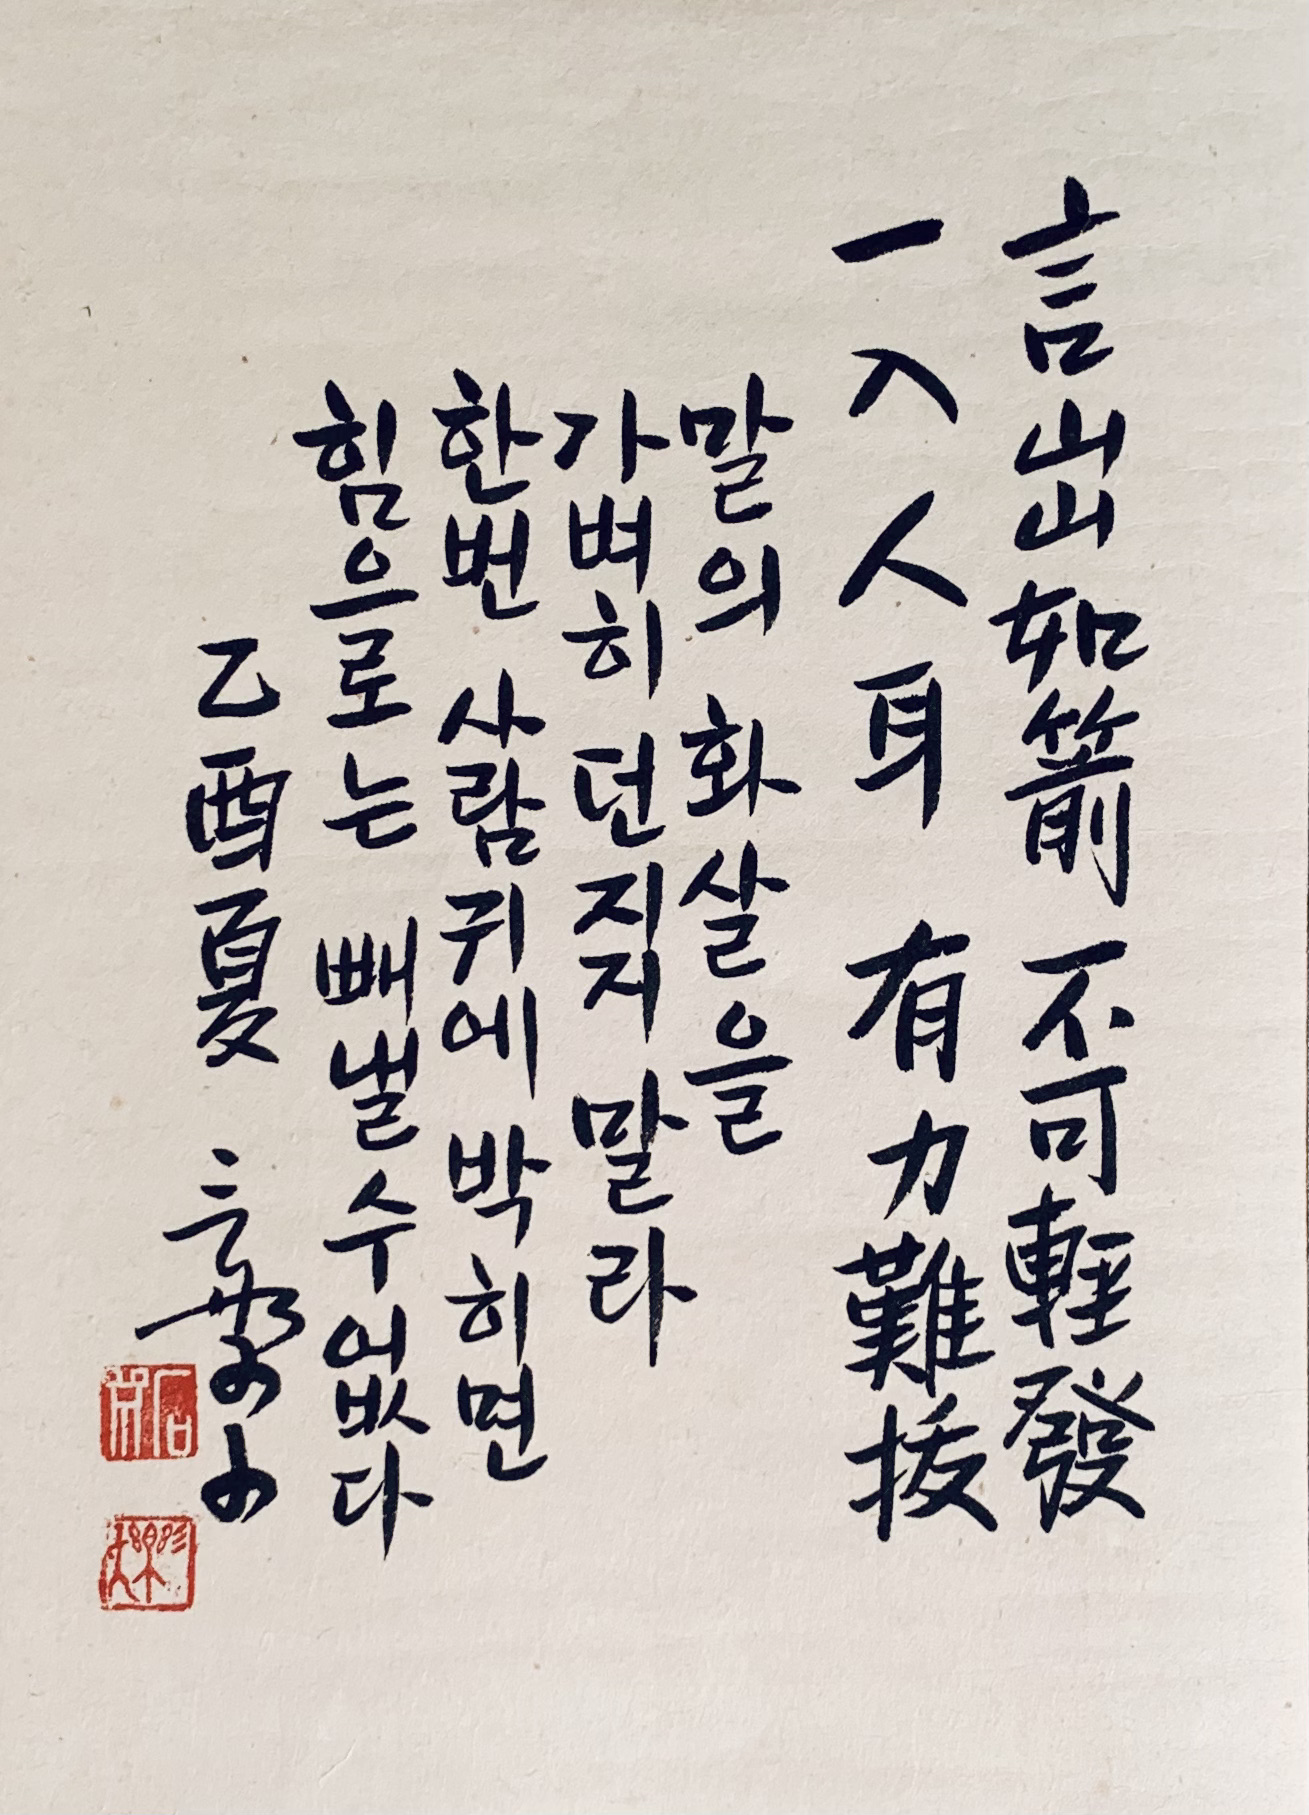 言出如箭 不可輕發
一入人耳 有力難拔
말의 화살을
가벼히 던지지 말라
한번 사람 귀에 박히면
힘으로는 빼낼 수 없다
乙酉夏